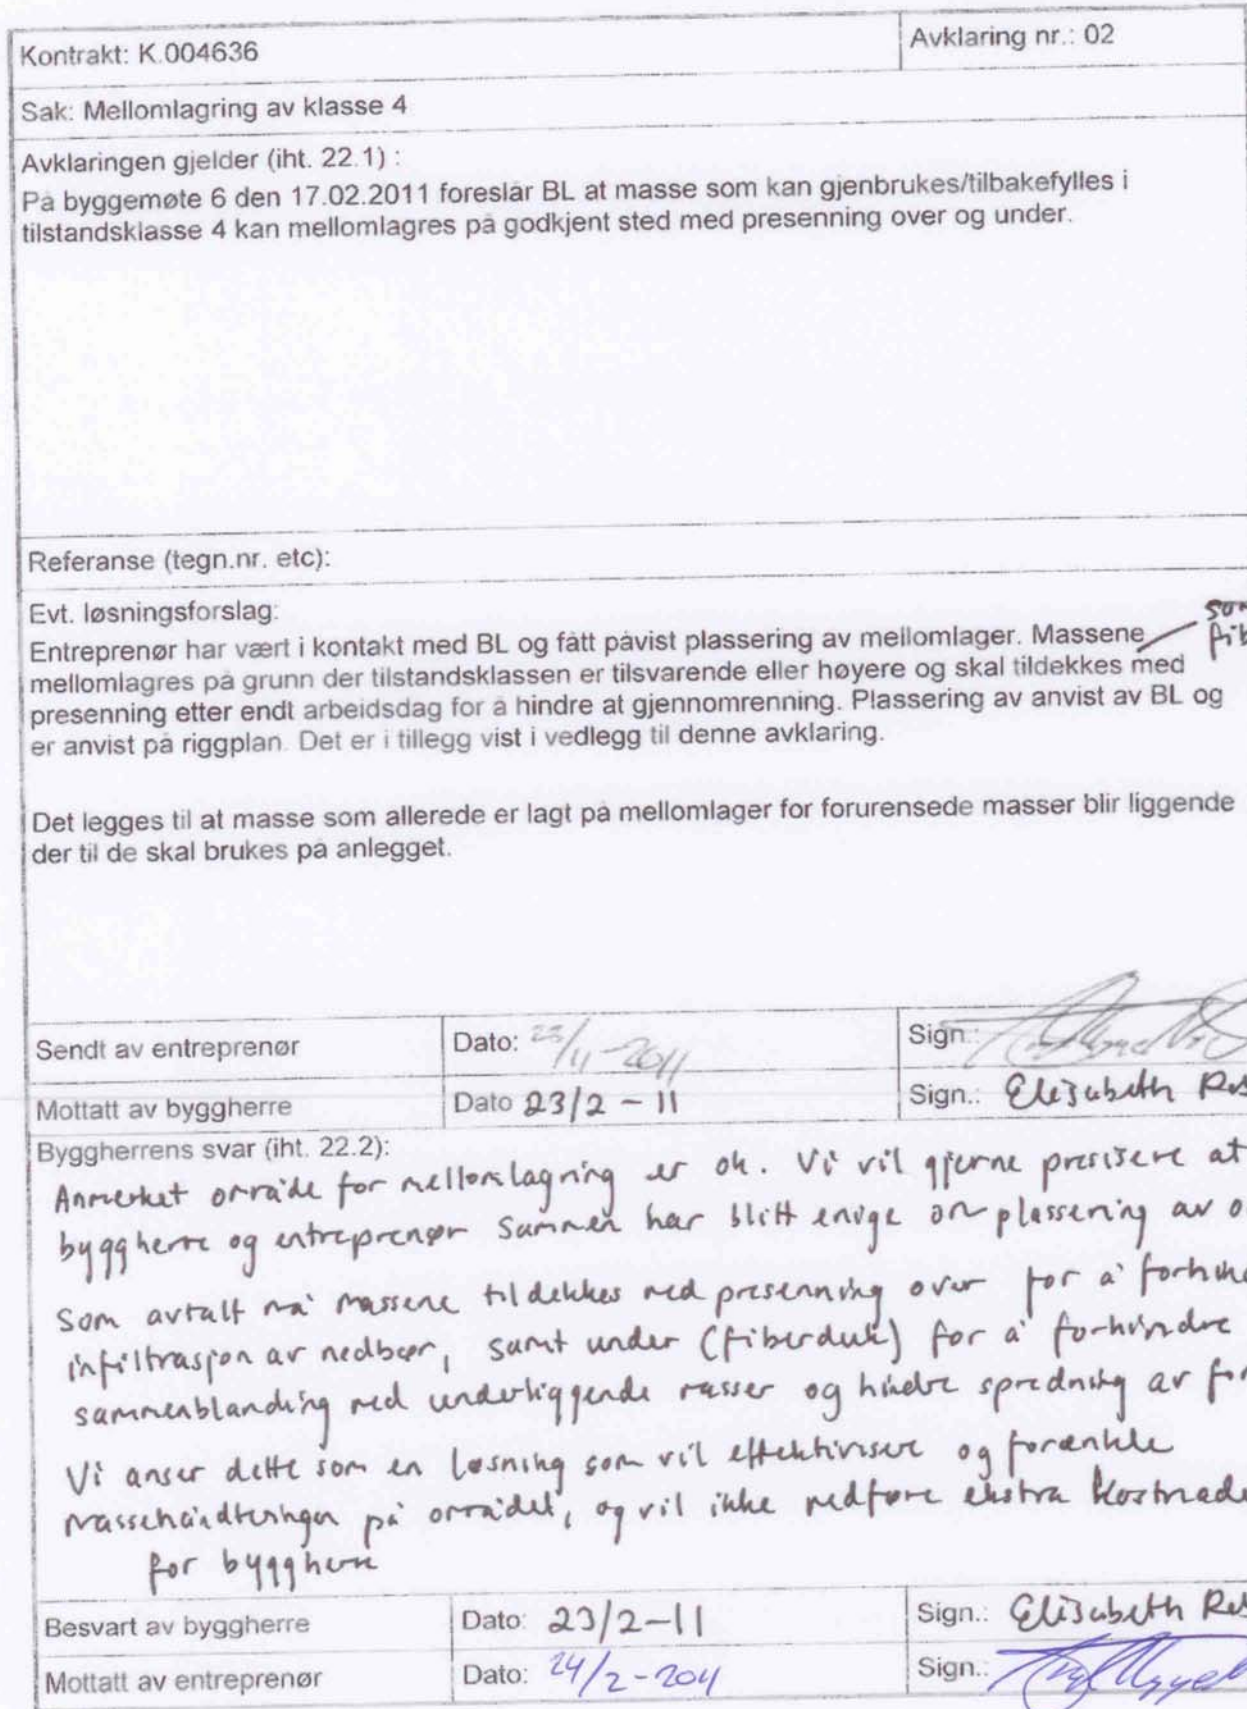 Kontrakt: K.004636
Avklaring nr.: 02
Sak: Mellomlagring av klasse 4
Avklaringen gjelder (iht. 22.1) :
På byggemøte 6 den 17.02.2011 foreslår BL at masse som kan gjenbrukes/tilbakefylles i
tilstandsklasse 4 kan mellomlagres på godkjent sted med presenning over og under.
Referanse (tegn.nr. etc):
Evt. løsningsforslag:
Entreprenør har vært i kontakt med BL og fått påvist plassering av mellomlager. Massene
mellomlagres på grunn der tilstandsklassen er tilsvarende eller høyere og skal tildekkes med
presenning etter endt arbeidsdag for å hindre at gjennomrenning. Plassering av anvist av BL og
er anvist på riggplan. Det er i tillegg vist i vedlegg til denne avklaring.
Det legges til at masse som allerede er lagt på mellomlager for forurensede masser blir liggende
der til de skal brukes på anlegget.
Sendt av entreprenør
Dato:
Sign.:
Mottatt av byggherre
Dato 23/2 - 11
Sign.: Elisabeth
Byggherrens svar (iht. 22.2):
Anmerket område for mellomlagring er ok. Vi vil gjerne presisere at
byggherre og entreprenør sammen har blitt enige om plassering av
Som avtalt må massene tildekkes med presenning over for å
infiltrasjon av nedbør, samt under (fiberduk) for å forhindre
sammenblanding med underliggende masser og hindre spredning av
Vi anser dette som en løsning som vil effektivisere og forenkle
massehåndteringen på området, og vil ikke medføre ekstra
for byggherre
Besvart av byggherre
Dato: 23/2-11
Sign.: Elisabeth
Mottatt av entreprenør
Dato: 24/2-2011
Sign.: